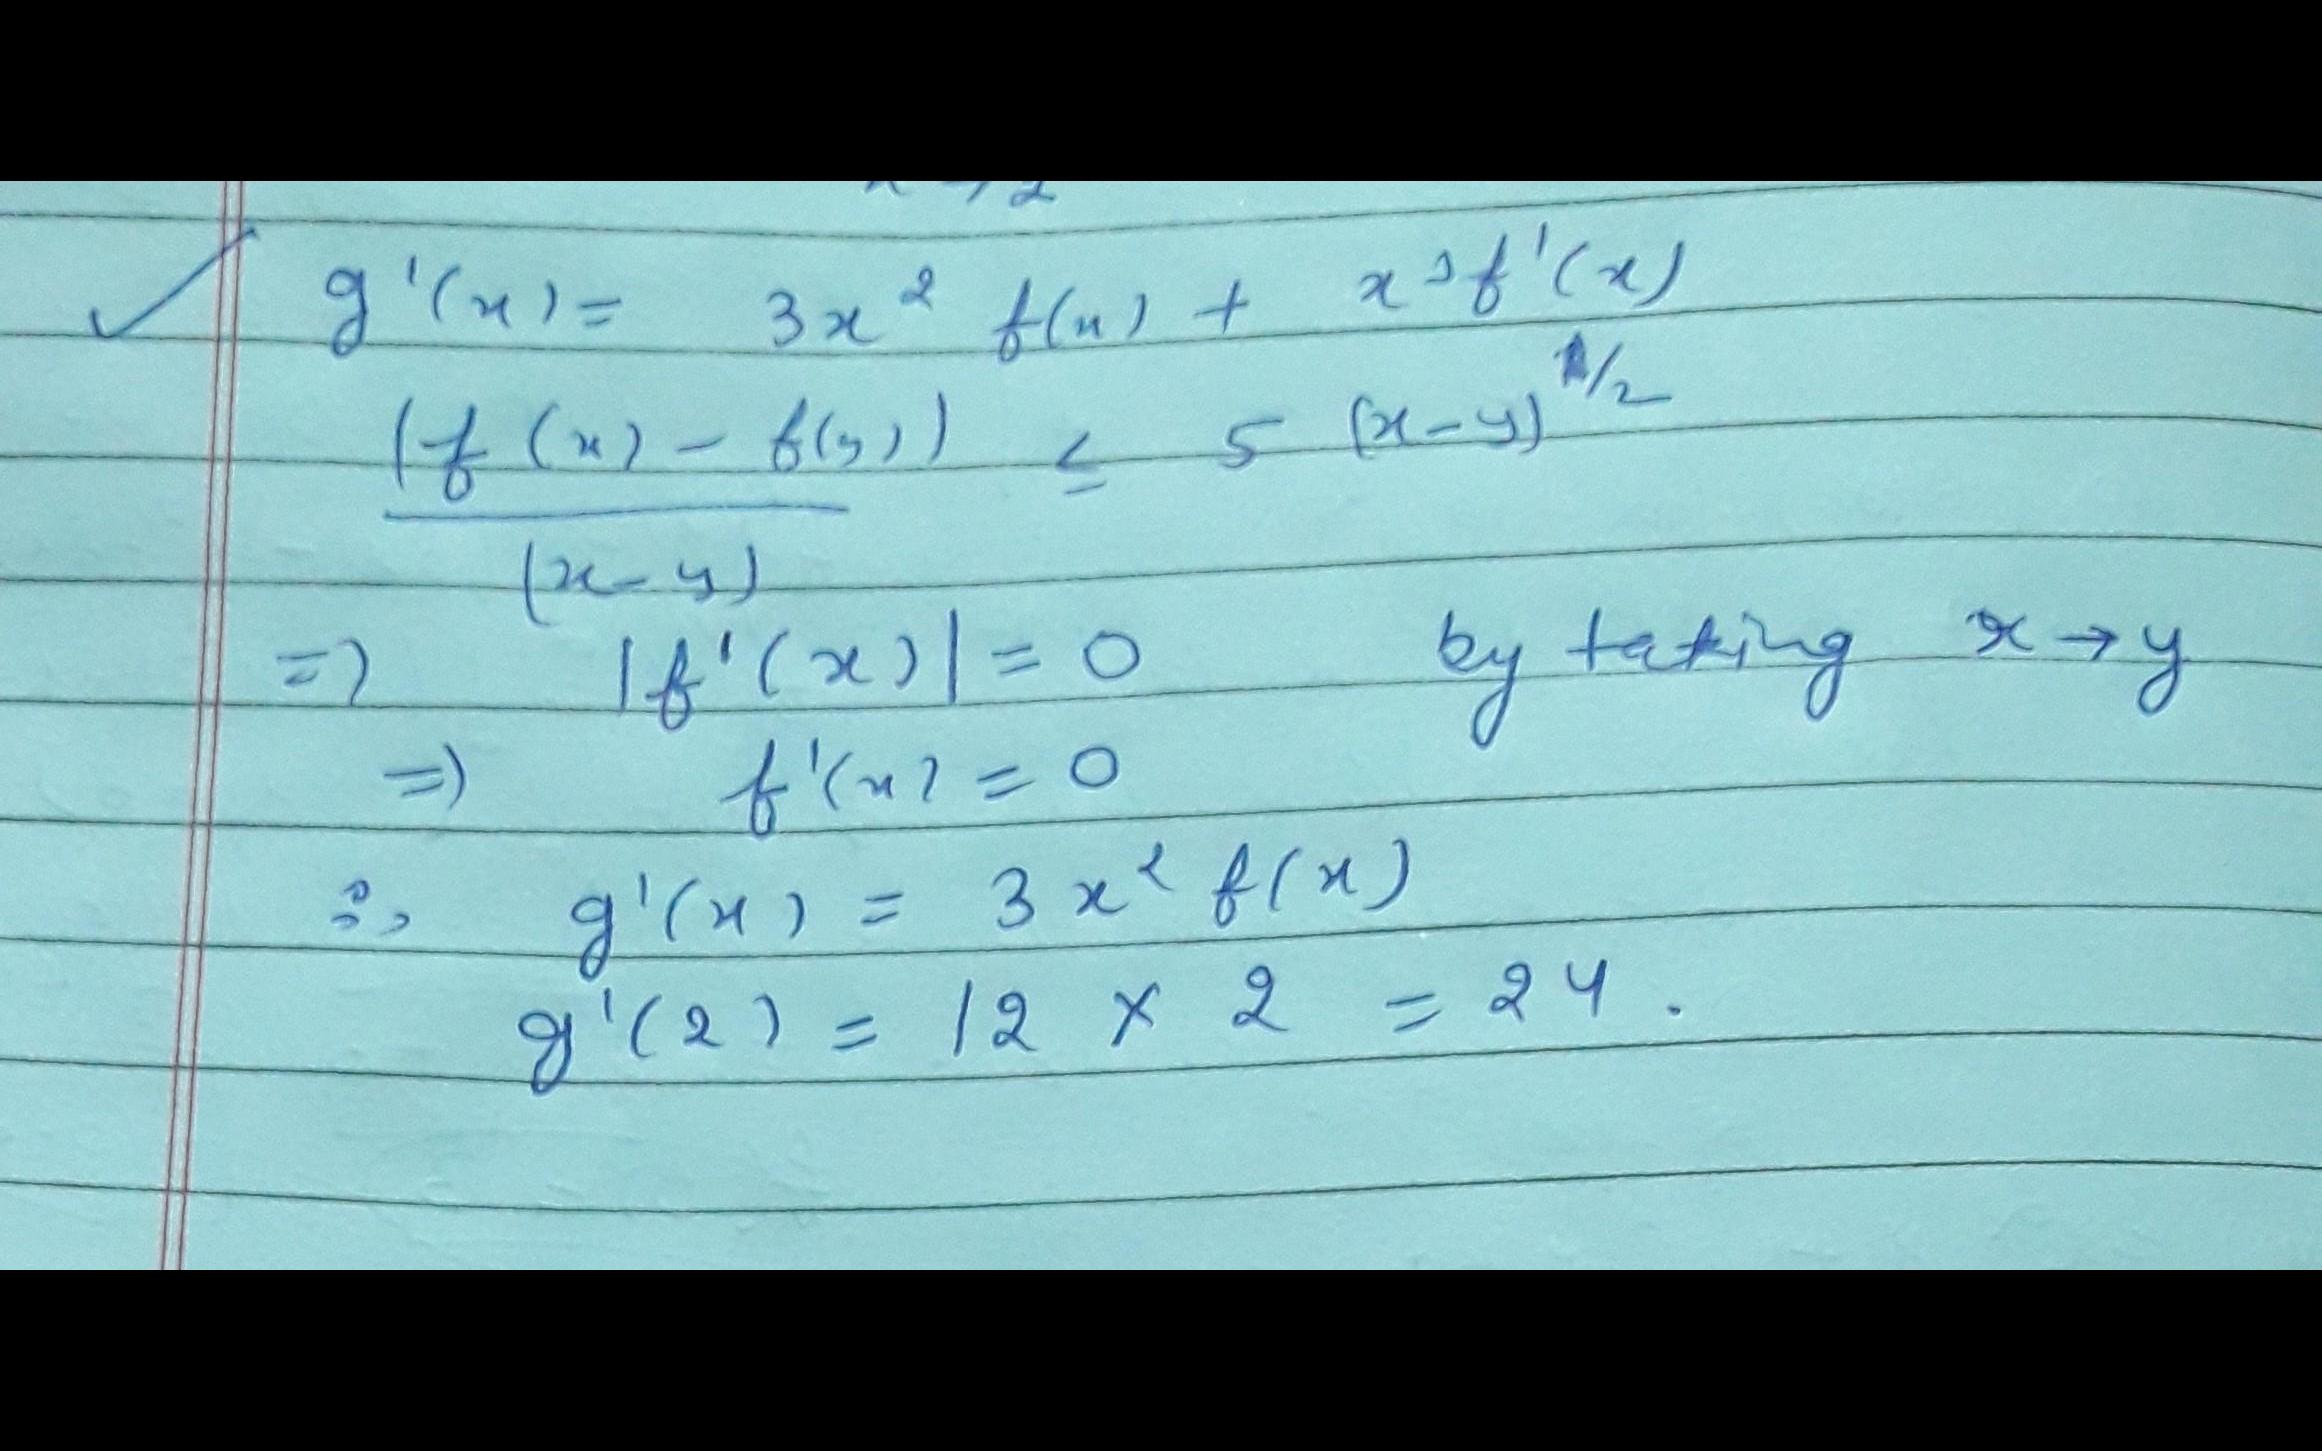 x → 2
g'(x) = 3x² f(x) + x³f'(x)
|f(x) - f(y)| ≤ 5 (x-y)^1/2
(x-y)
=> |f'(x)| = 0 by taking x → y
=> f'(x) = 0
∴, g'(x) = 3x² f(x)
g'(2) = 12 × 2 = 24.